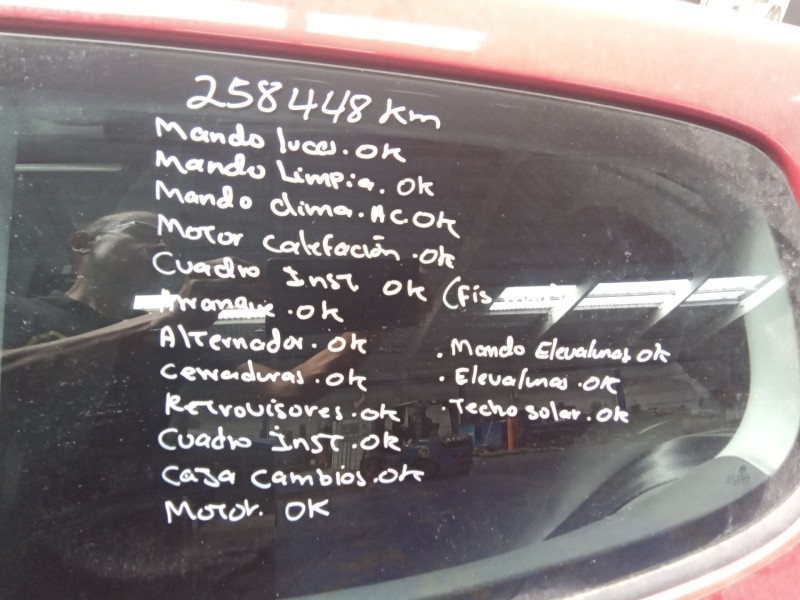 258448 Km
Mando luces. OK
Mando Limpia. OK
Mando clima. AC OK
Motor Calefación. OK
Cuadro Inst OK (Fis
Arranque. OK
Alternador. OK
Cerraduras. OK
Retrovisores. OK
Cuadro Inst. OK
Caja Cambios. OK
Motor. OK
. Mando Elevalunas OK
. Elevalunas. OK
. Techo solar. OK